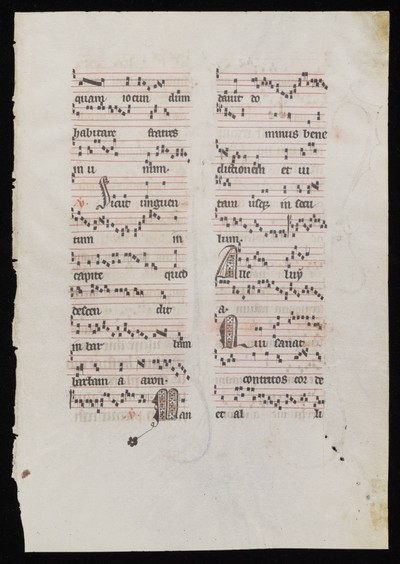 quam iocun dum
habitare fratres
in u num.
V. Sicut unguen
tum in
capite quod
descen dit
in bar bam
barbam a aron.
V. Man
davit do
minus bene
dictionem et vi
tam usqz in secu
lum.
Alle luya
a.
Qui sanat
contritos cor de
et al li